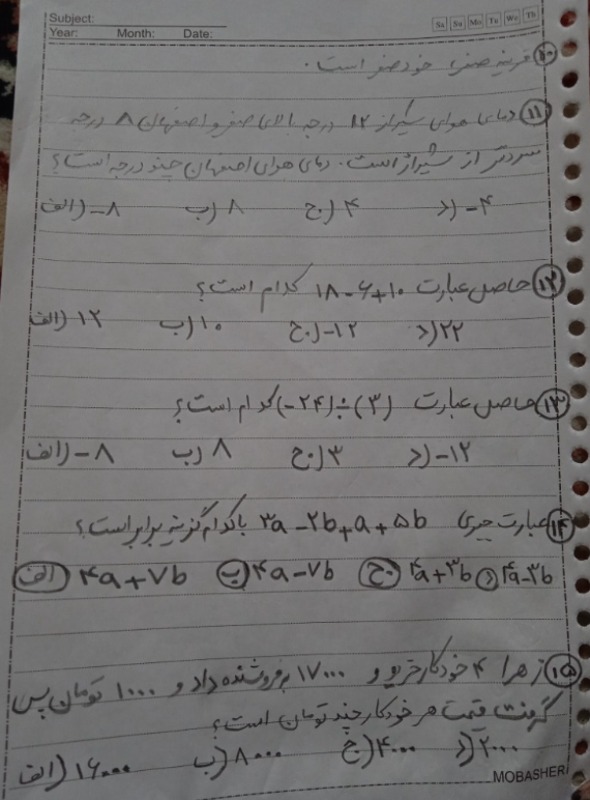 Subject:
Year: Month: Date:
Sa Su Mo Tu We Th
۱۰) قرینه صفر، خود صفر است.
۱۱) دمای هوای شیراز ۱۲ درجه بالای صفر و اصفهان ۸ درجه
سردتر از شیراز است. دمای هوای اصفهان چند درجه است؟
الف) ۸- ب) ۸ ج) ۴ د) ۴-
۱۲) حاصل عبارت ۱۸-۶+۱۰ کدام است؟
الف) ۱۲ ب) ۱۰ ج) ۱۲- د) ۲۲
۱۳) حاصل عبارت (-۲۴)÷(۳) کدام است؟
الف) ۸- ب) ۸ ج) ۳ د) ۱۲-
۱۴) عبارت جبری ۳a-۲b+a+۵b با کدام گزینه برابر است؟
الف) ۴a+۷b ب) ۴a-۷b ج) ۴a+۳b د) ۴a-۳b
۱۵) زهرا ۴ خودکار خرید و ۱۷۰۰۰ به فروشنده داد و ۱۰۰۰ تومان پس
گرفت قیمت هر خودکار چند تومان است؟
الف) ۱۶۰۰۰ ب) ۸۰۰۰ ج) ۴۰۰۰ د) ۲۰۰۰
MOBASHER